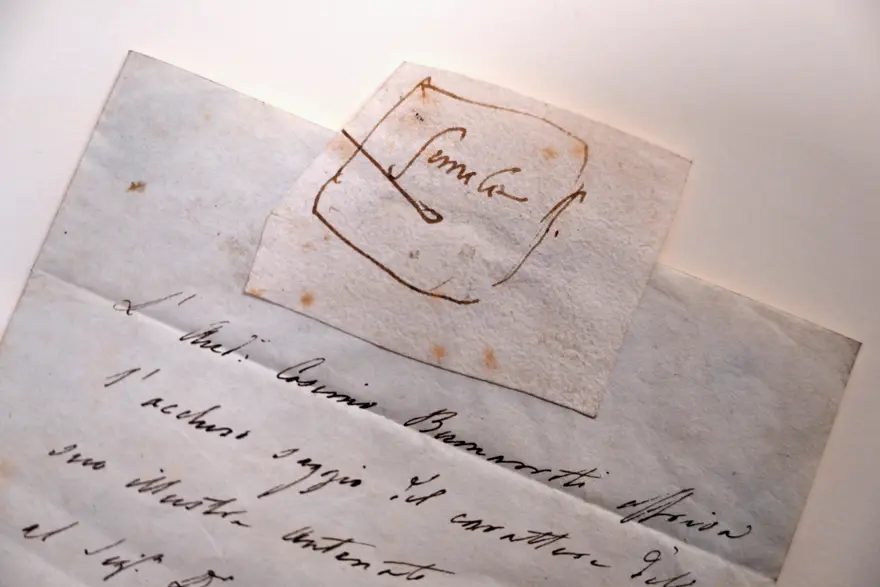 simile
L' Aud. Cosimo Buonarroti offriva
l' accluso saggio del carattere dell
suo illustre antenato
al Sigr. D